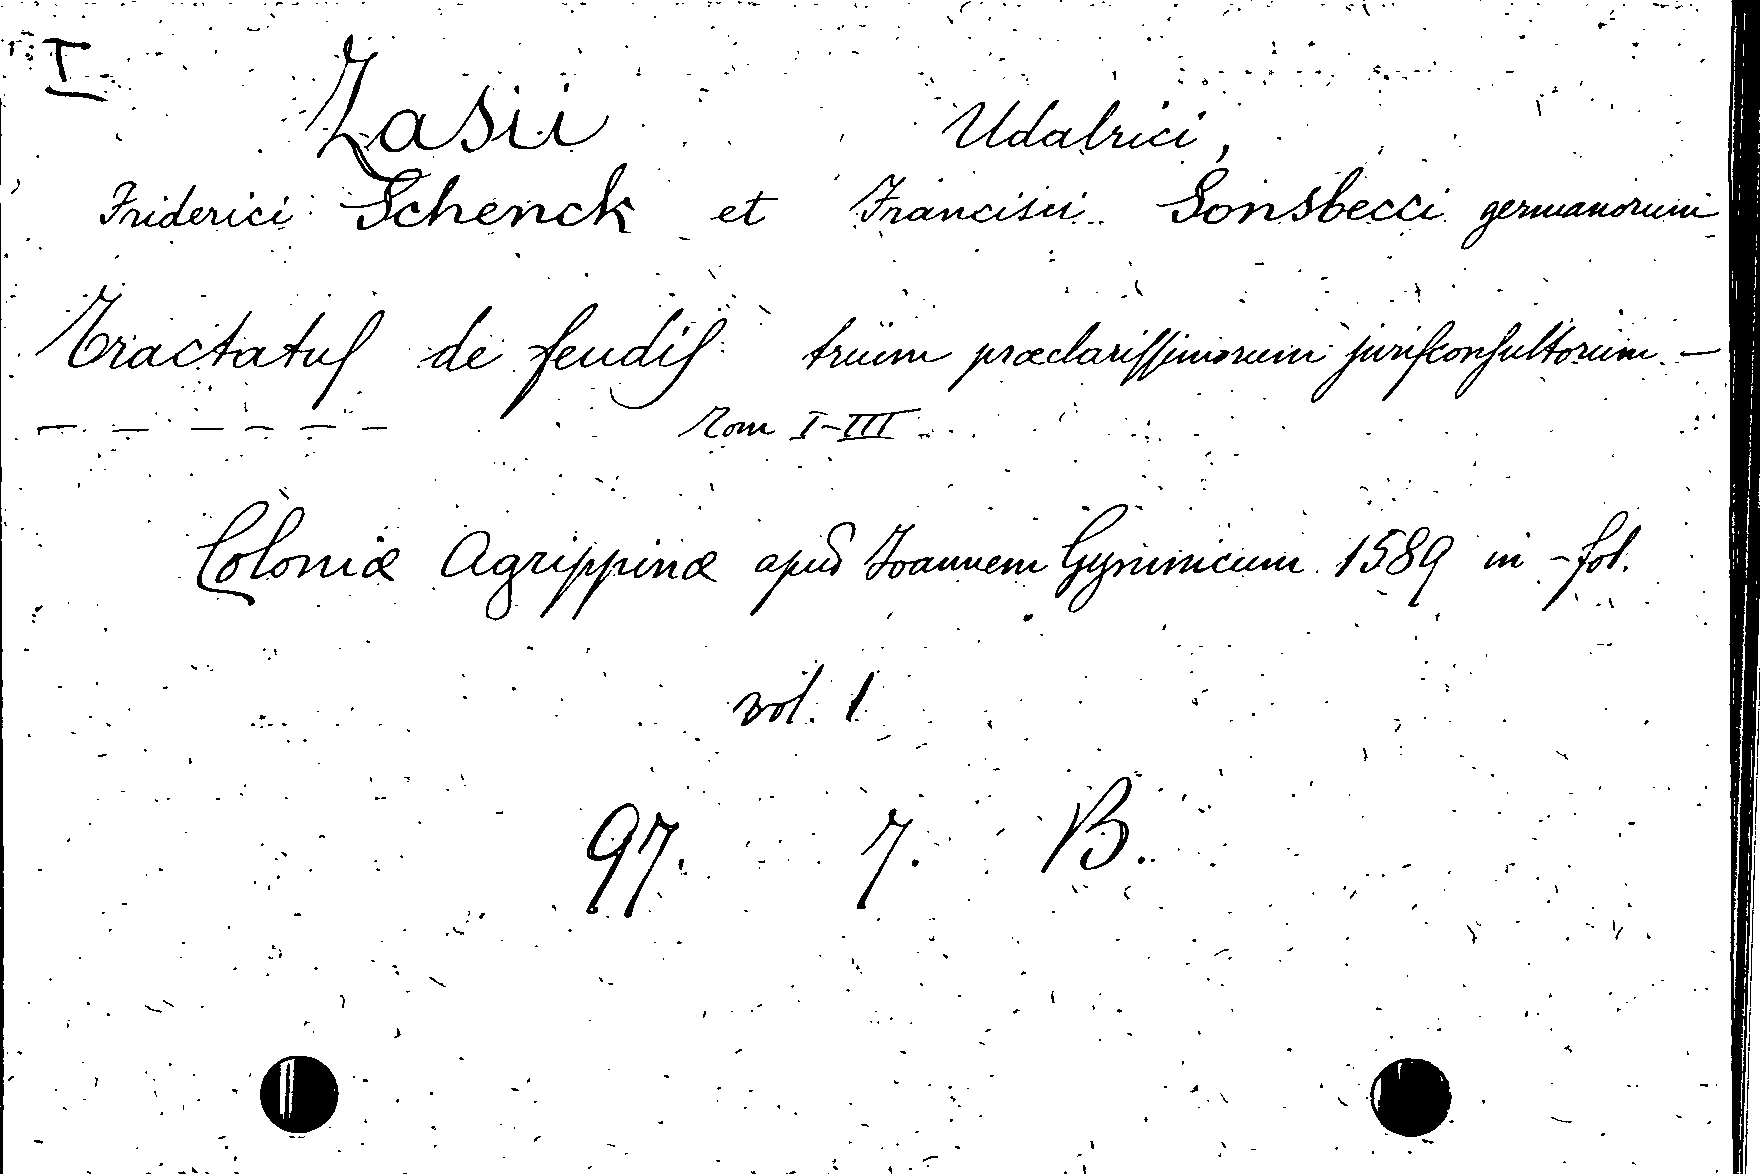 I
Zasii Udalrici,
Friderici Schenck et Francisci Sonsbecci germanorum
Tractatuſ de feudiſ trium præclariſſimorum juriſconſultorum —
— — — — — — Tom I-III
Coloniæ Agrippinæ apud Joannem Gymnicum 1589 in-fol.
vol. 1
97. 7. B.